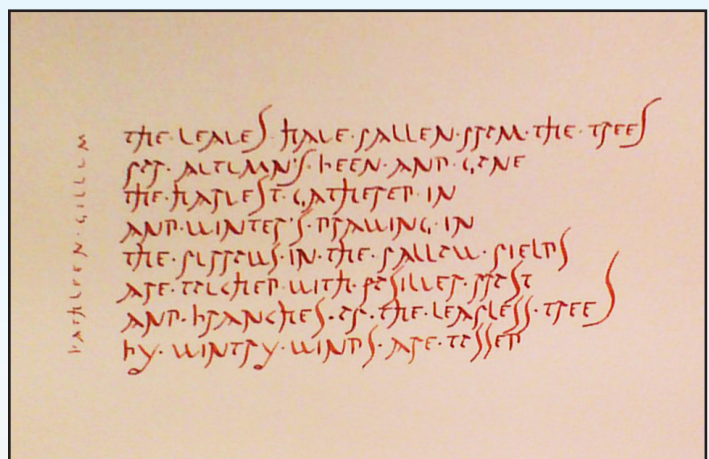 THE·LEAVES HAVE·FALLEN·FROM·THE·TREES
FOR·AUTUMN'S·BEEN·AND·GONE
THE·HARVEST·GATHERED·IN
AND·WINTER'S·DRAWING·IN
THE·FURROWS·IN·THE·FALLOW·FIELDS
ARE·TOUCHED·WITH·SILVER·FROST
AND·BRANCHES·OF·THE·LEAFLESS·TREES
BY·WINTRY·WINDS·ARE·TOSSED
KATHLEEN·GILLUM